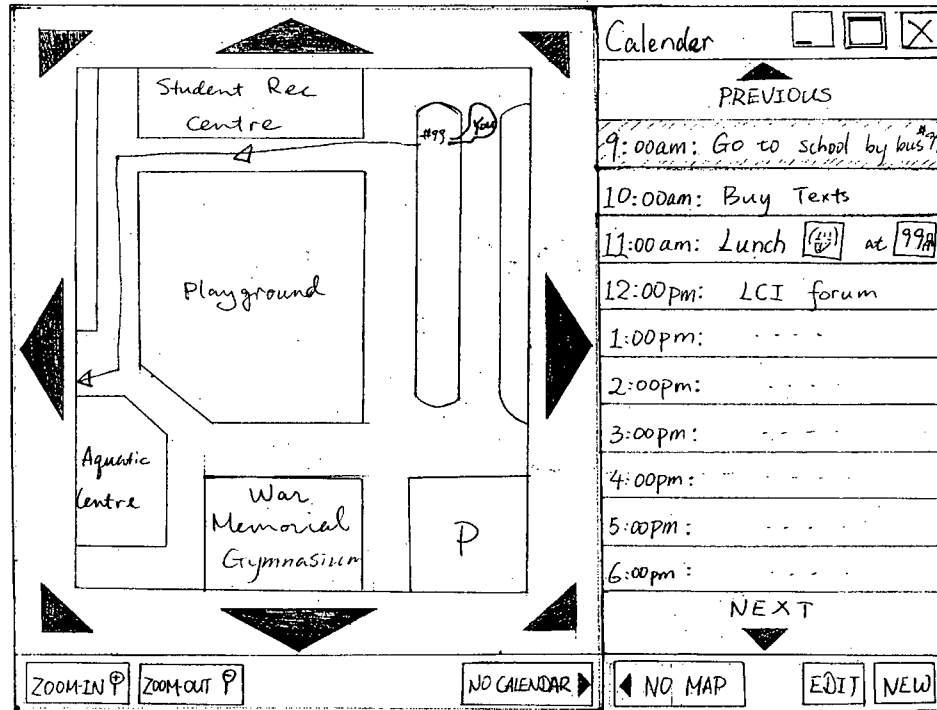 Student Rec
Centre
#99
You
Playground
Aquatic
Centre
War
Memorial
Gymnasium
P
ZOOM-IN
ZOOM-OUT
NO CALENDAR
Calendar
PREVIOUS
9:00am: Go to school by bus
10:00am: Buy Texts
11:00am: Lunch at 99
12:00pm: LCI forum
1:00pm: ....
2:00pm: ....
3:00pm: ....
4:00pm: ....
5:00pm: ....
6:00pm: ....
NEXT
NO MAP
EDIT
NEW